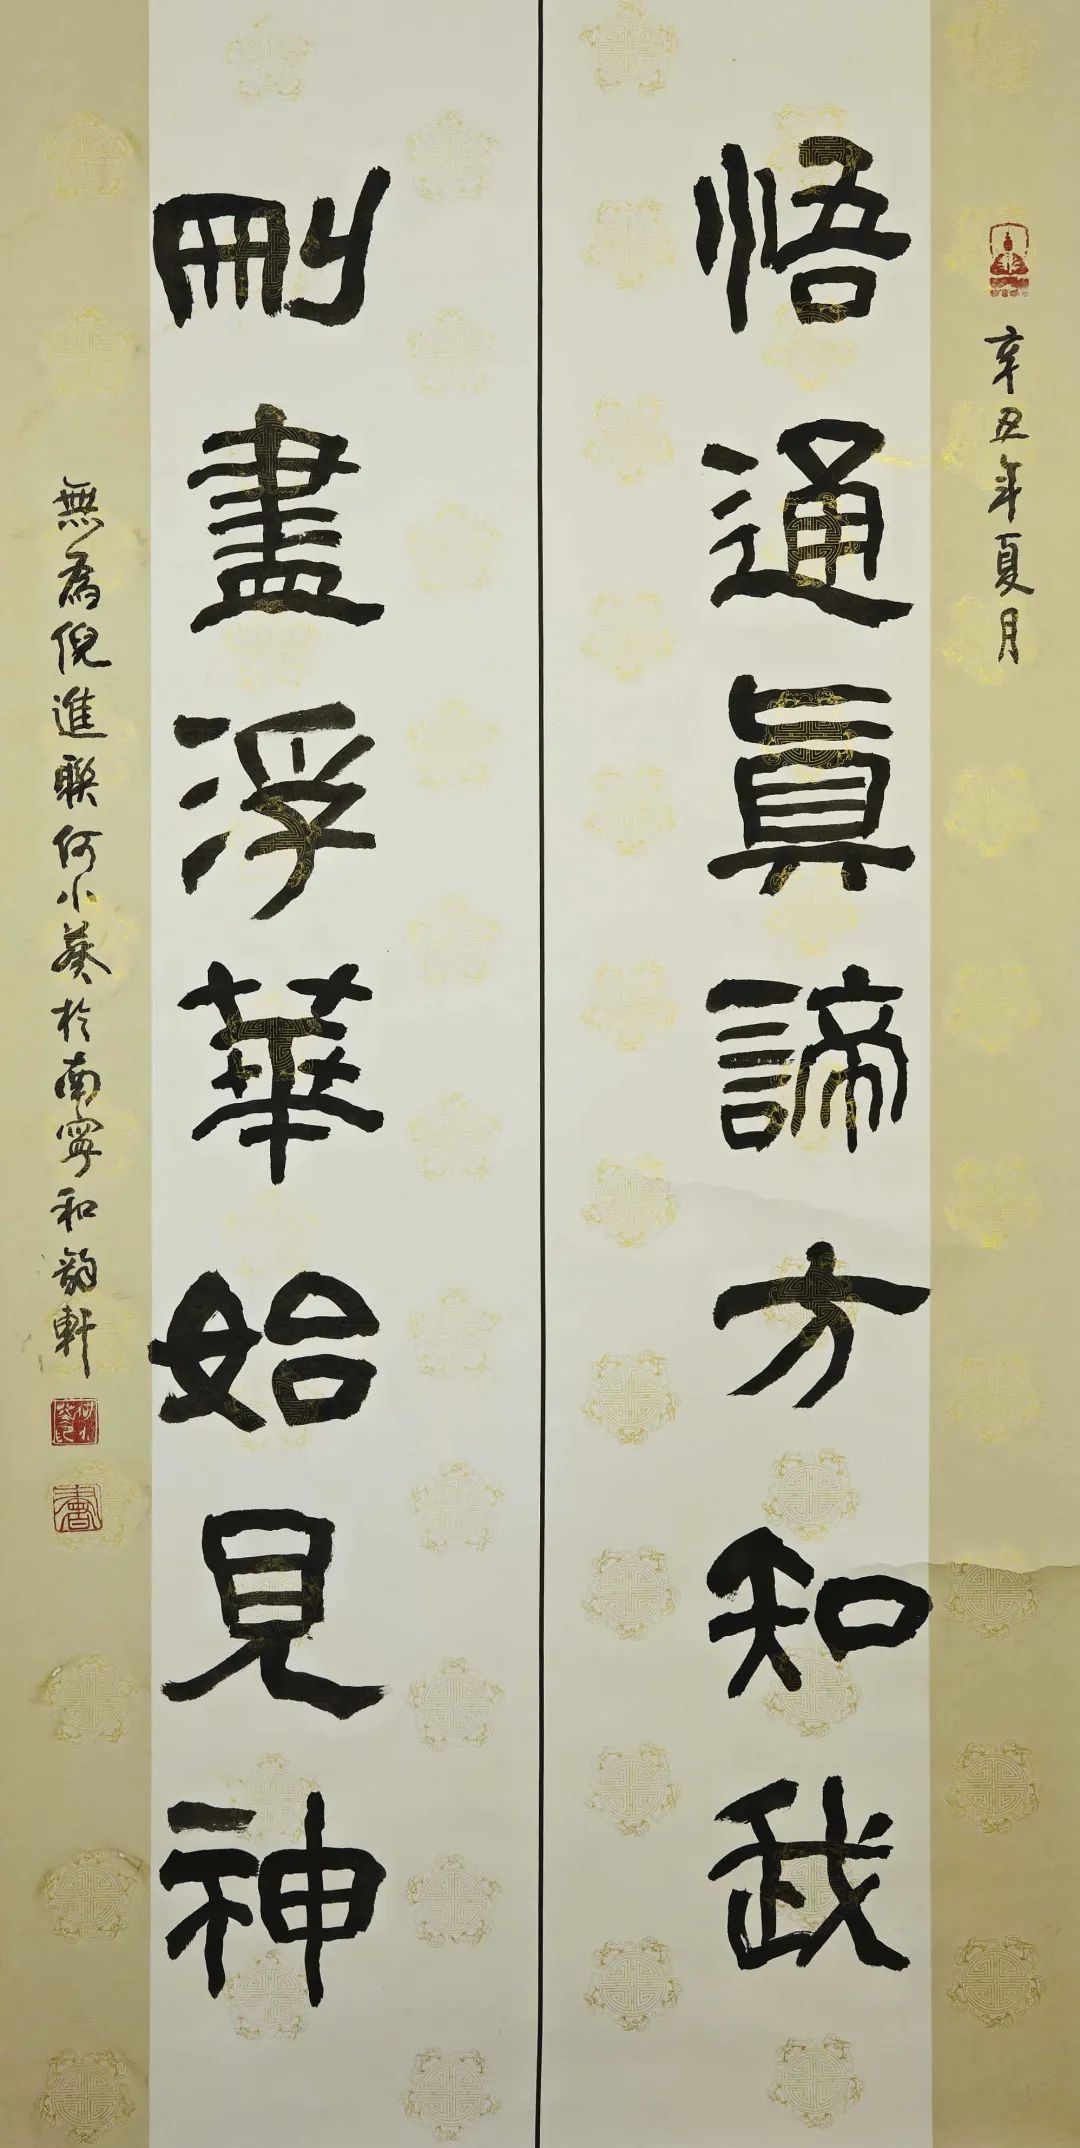 辛丑年夏月
悟通真諦方知武
刪盡浮華始見神
無為倪進聯何小葵於南寧和韻軒